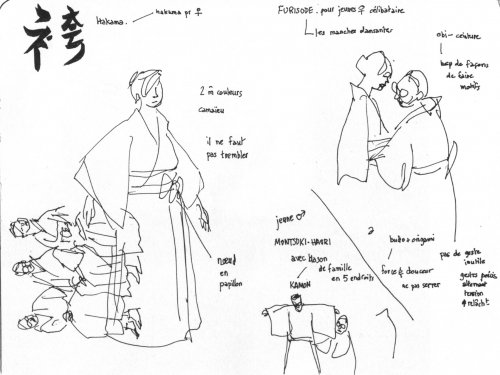 袴
Hakama.
hakama pr ♀
2 m̂ couleurs
camaïeu
il ne faut
pas trembler
nœud
en
papillon
FURISODE. pour jeunes ♀ célibataire
les manches dansantes
obi = ceinture
bcp de façons
de faire
motifs
jeune ♂
MONTSUKI-HAORI
avec blason
de famille
en 5 endroits
KAMON
origami
force & douceur
ne pas serrer
pas de geste
inutile
gestes précis
alternant
tension
& relâcht